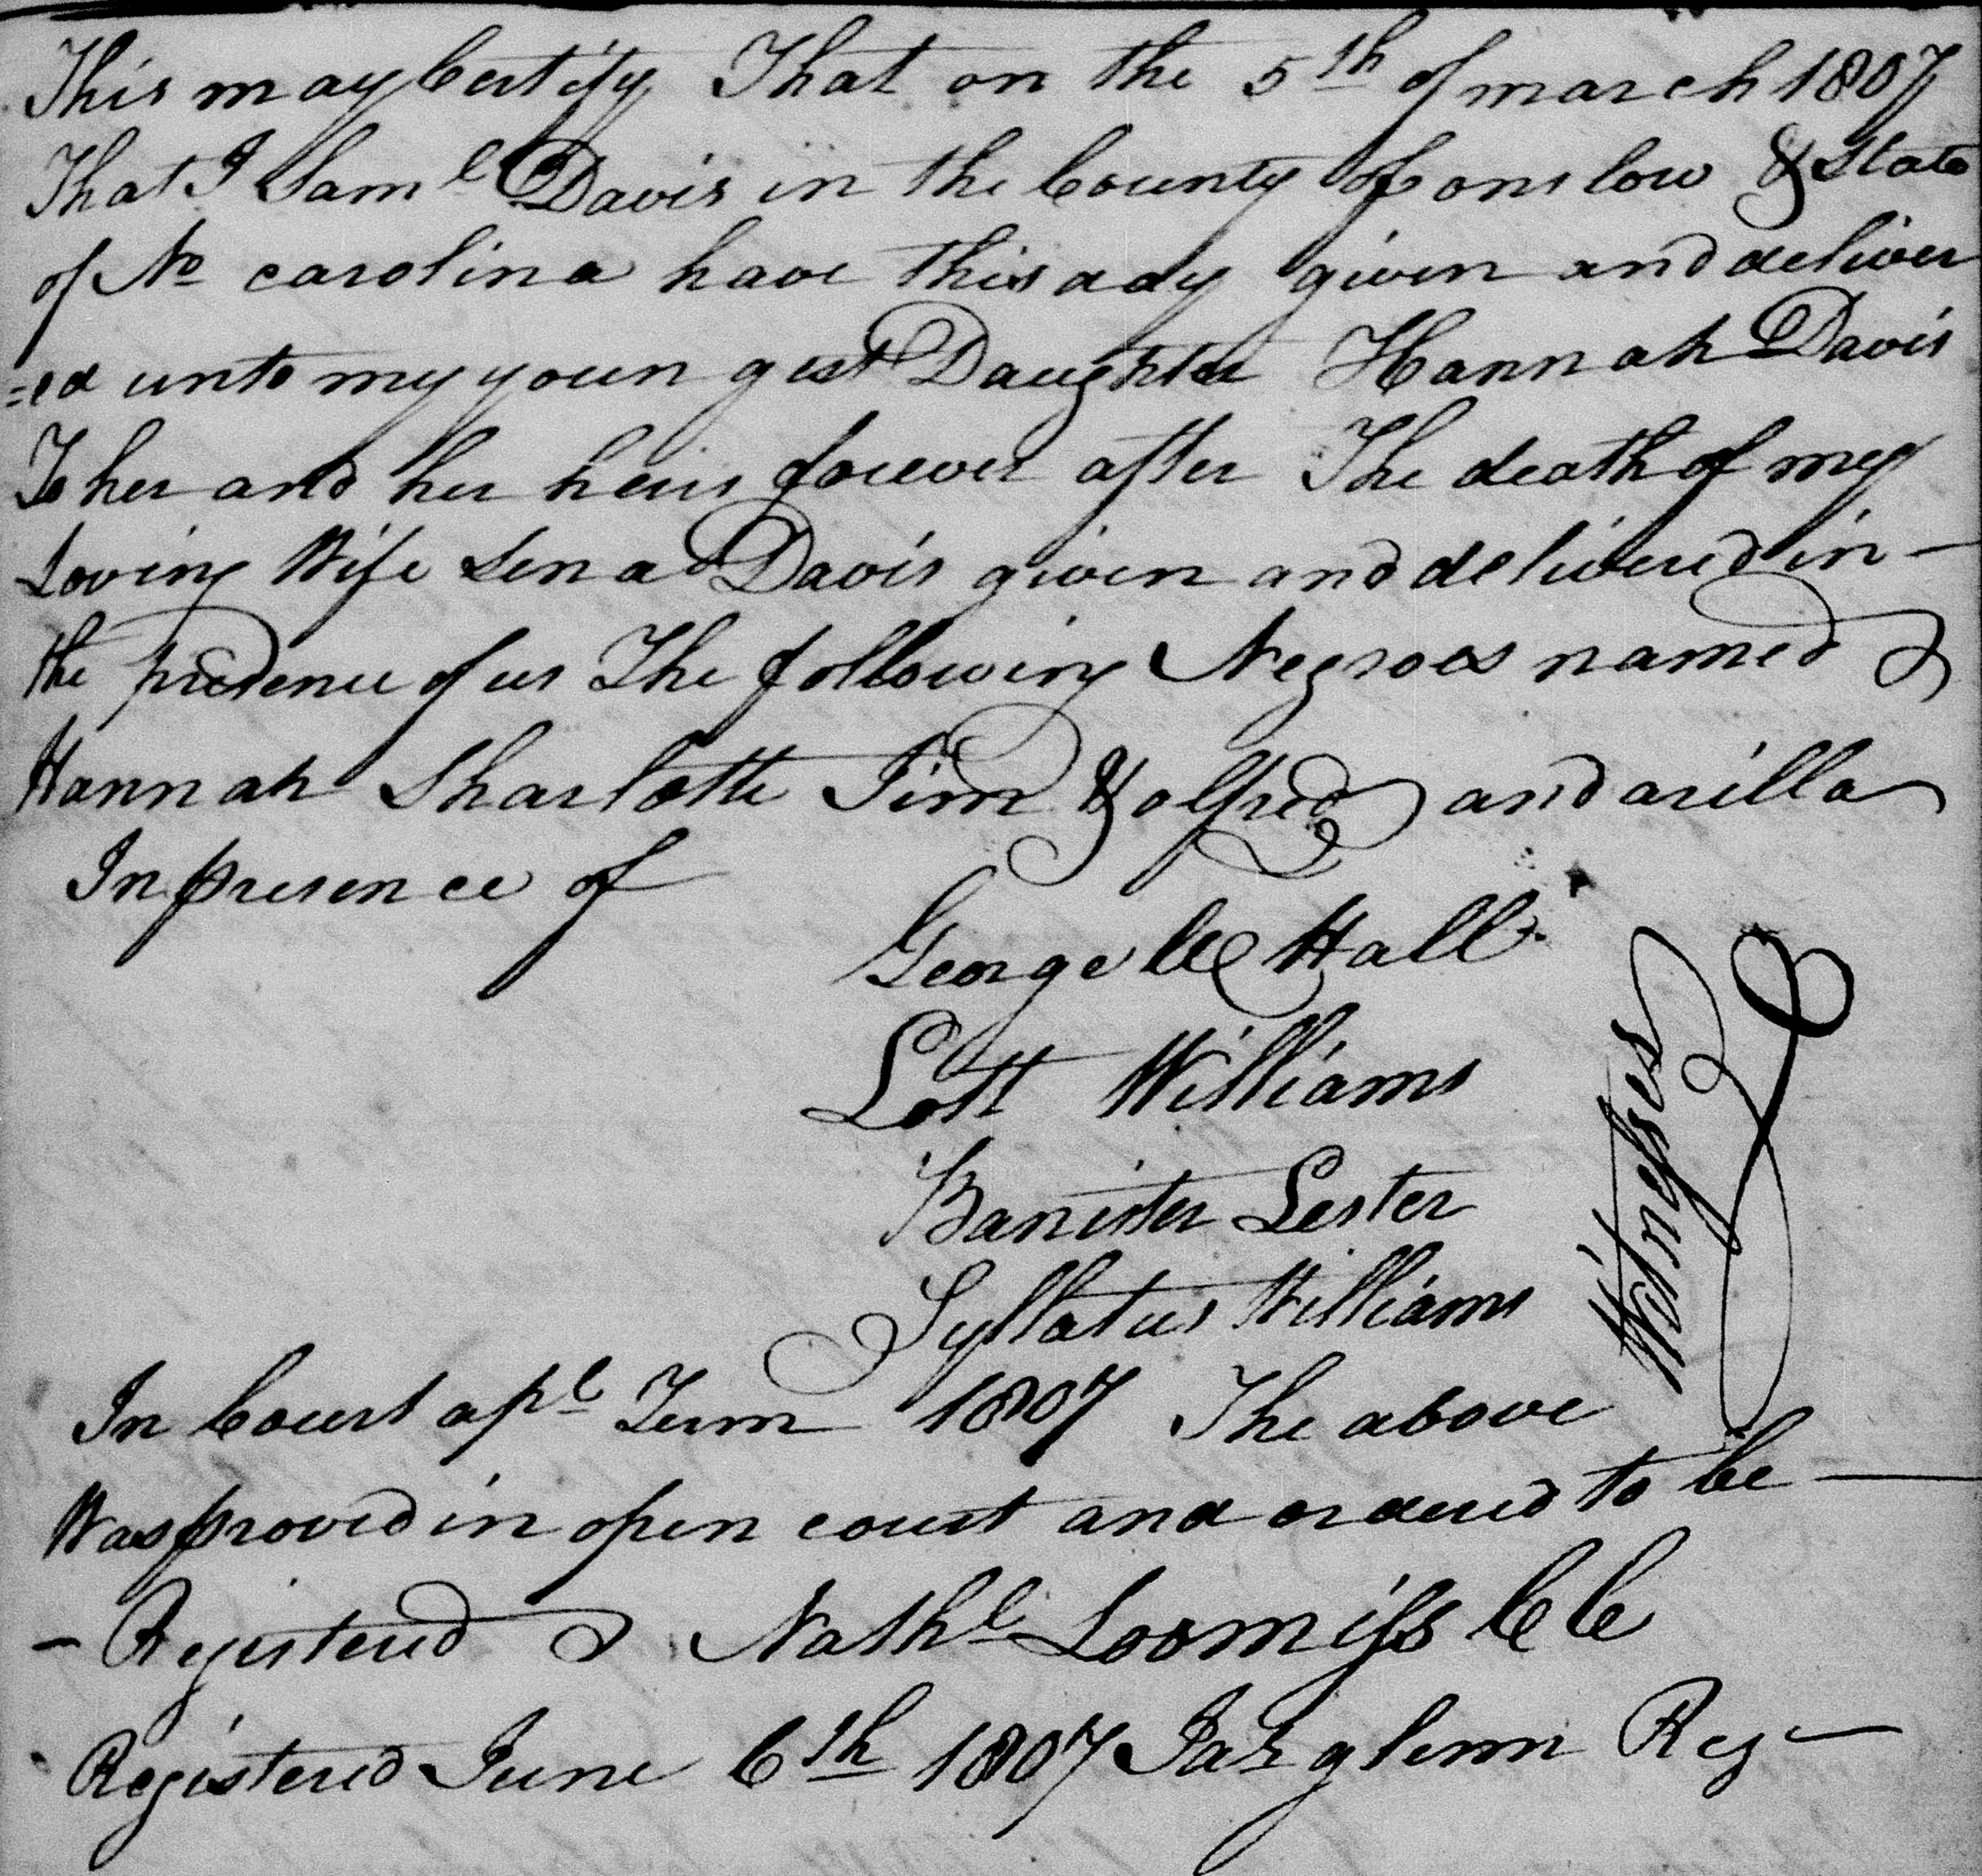 This may Certify That on the 5th of march 1807
That I Saml Davis in the County of onslow & State
of No carolina have this ady given and deliver
=ed unto my youngest Daughter Hannah Davis
To her and her heirs forever after The death of my
Loving Wife Sena Davis given and delivered in -
the presence of us The following Negroes named
Hannah Sharlotte Jim & alfred and arilla
In presence of
George Hall
Lott Williams
Banister Lester
Syllatus Williams
Witnesses
In Court apl Term 1807 The above
Was proved in open court and ordered to be —
- Registered Nathl Loomiss CC
Registered June 6th 1807 Jas glenn Reg -